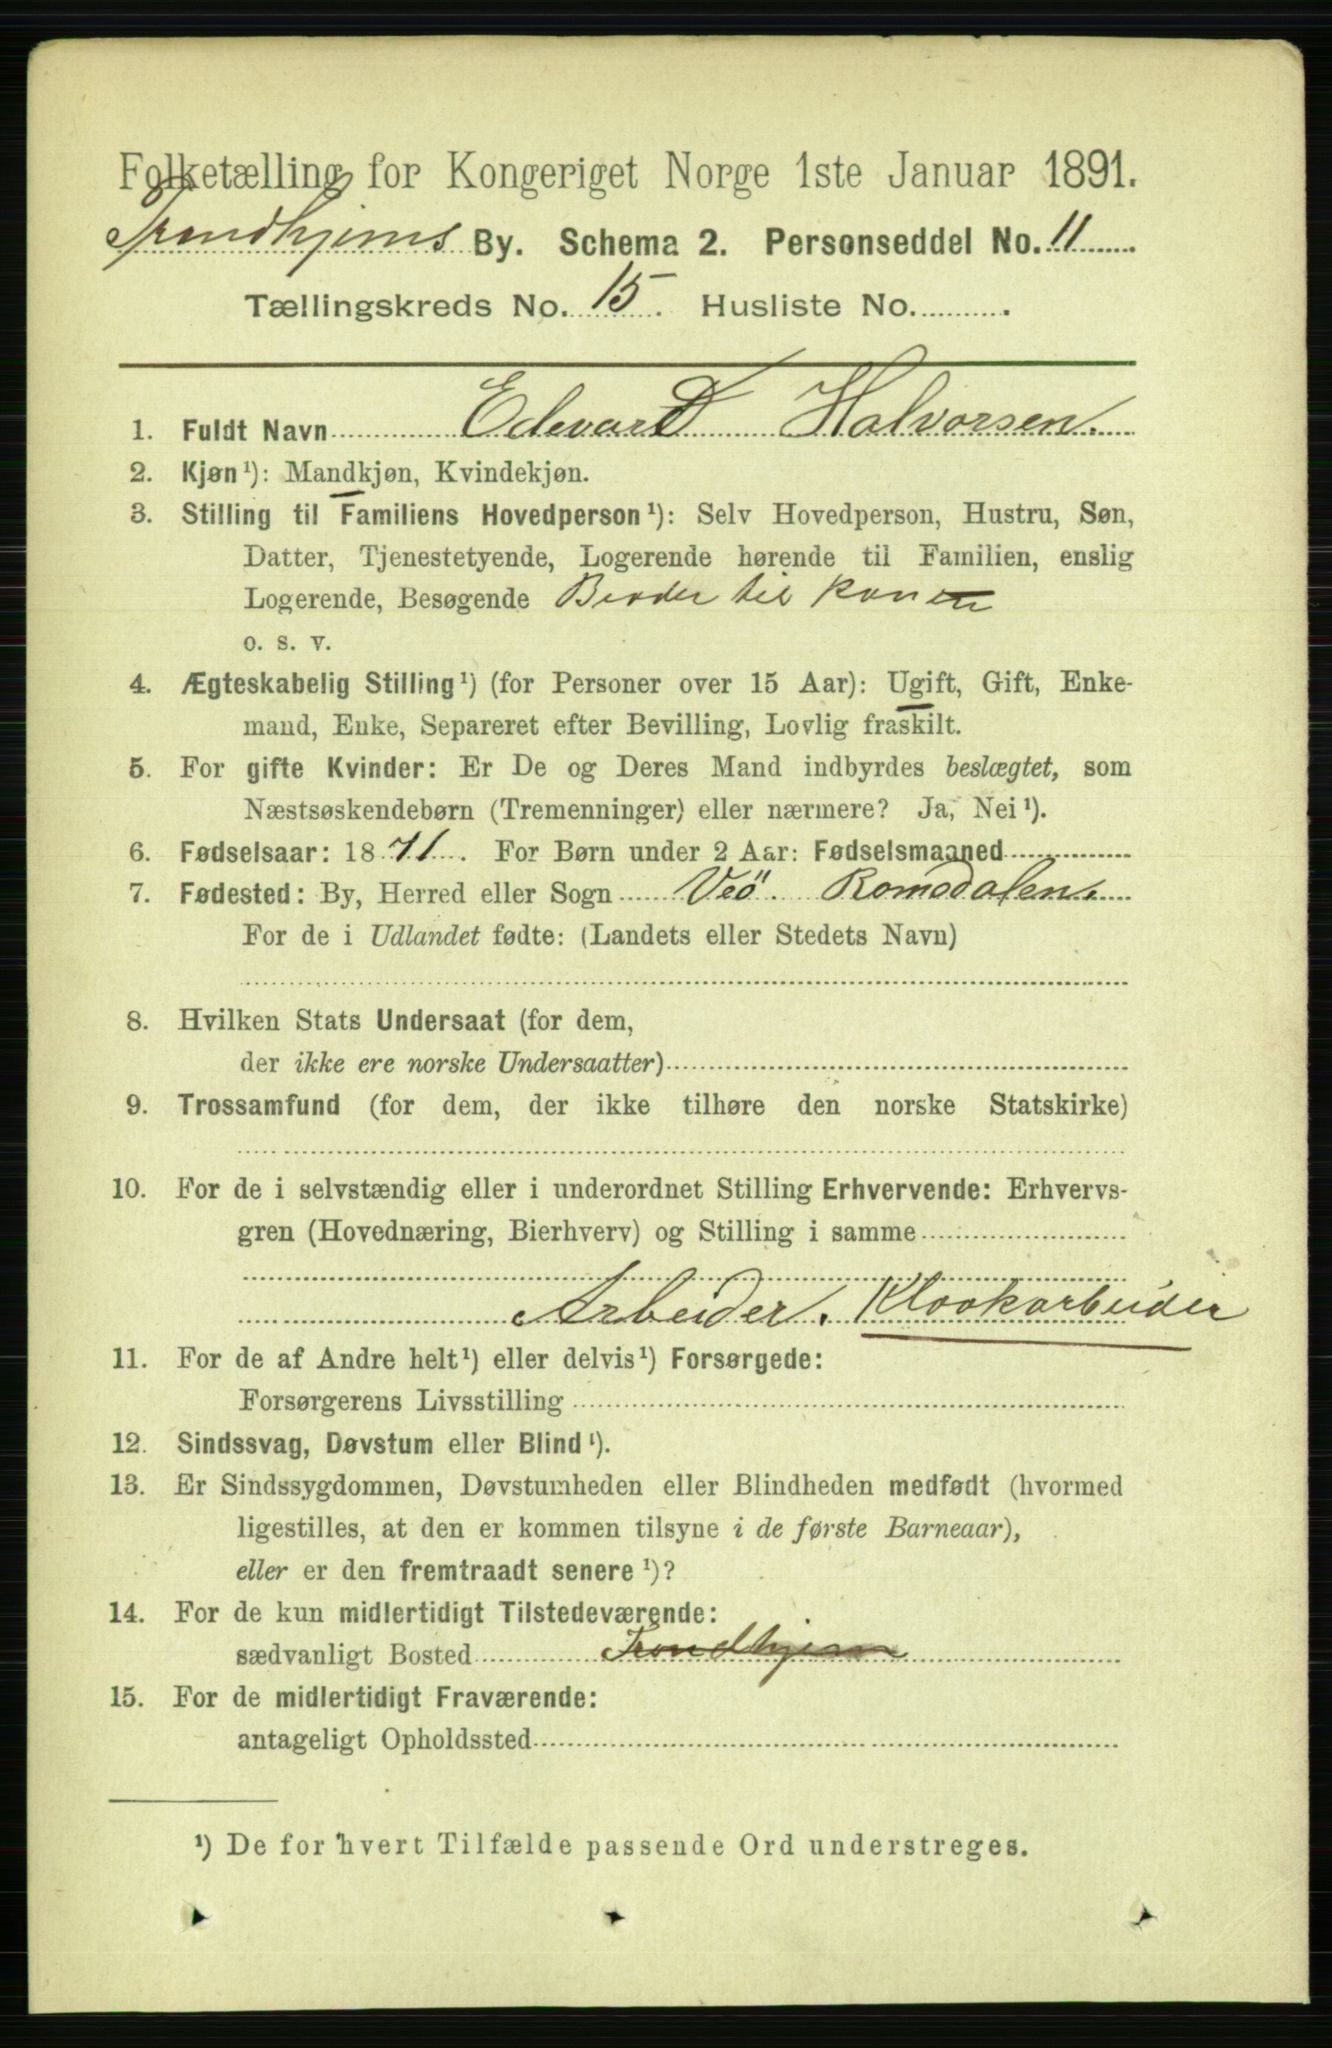 Folketælling for Kongeriget Norge 1ste Januar 1891.
Trondhjems By. Schema 2. Personseddel No. 11
Tællingskreds No. 15. Husliste No.
1. Fuldt Navn Edevard Halvorsen.
2. Kjøn¹): Mandkjøn, Kvindekjøn.
3. Stilling til Familiens Hovedperson¹): Selv Hovedperson, Hustru, Søn,
Datter, Tjenestetyende, Logerende hørende til Familien, enslig
Logerende, Besøgende Broder til konen
o. s. v.
4. Ægteskabelig Stilling¹) (for Personer over 15 Aar): Ugift, Gift, Enke-
mand, Enke, Separeret efter Bevilling, Lovlig fraskilt.
5. For gifte Kvinder: Er De og Deres Mand indbyrdes beslægtet, som
Næstsøskendebørn (Tremenninger) eller nærmere? Ja, Nei¹).
6. Fødselsaar: 1871. For Børn under 2 Aar: Fødselsmaaned
7. Fødested: By, Herred eller Sogn Veö. Romsdalen.
For de i Udlandet fødte: (Landets eller Stedets Navn)
8. Hvilken Stats Undersaat (for dem,
der ikke ere norske Undersaatter)
9. Trossamfund (for dem, der ikke tilhøre den norske Statskirke)
10. For de i selvstændig eller i underordnet Stilling Erhvervende: Erhvervs-
gren (Hovednæring, Bierhverv) og Stilling i samme
Arbeider. Kloakarbeider
11. For de af Andre helt¹) eller delvis¹) Forsørgede:
Forsørgerens Livsstilling
12. Sindssvag, Døvstum eller Blind¹).
13. Er Sindssygdommen, Døvstumheden eller Blindheden medfødt (hvormed
ligestilles, at den er kommen tilsyne i de første Barneaar),
eller er den fremtraadt senere¹)?
14. For de kun midlertidigt Tilstedeværende:
sædvanligt Bosted Trondhjem
15. For de midlertidigt Fraværende:
antageligt Opholdssted
¹) De for hvert Tilfælde passende Ord understreges.